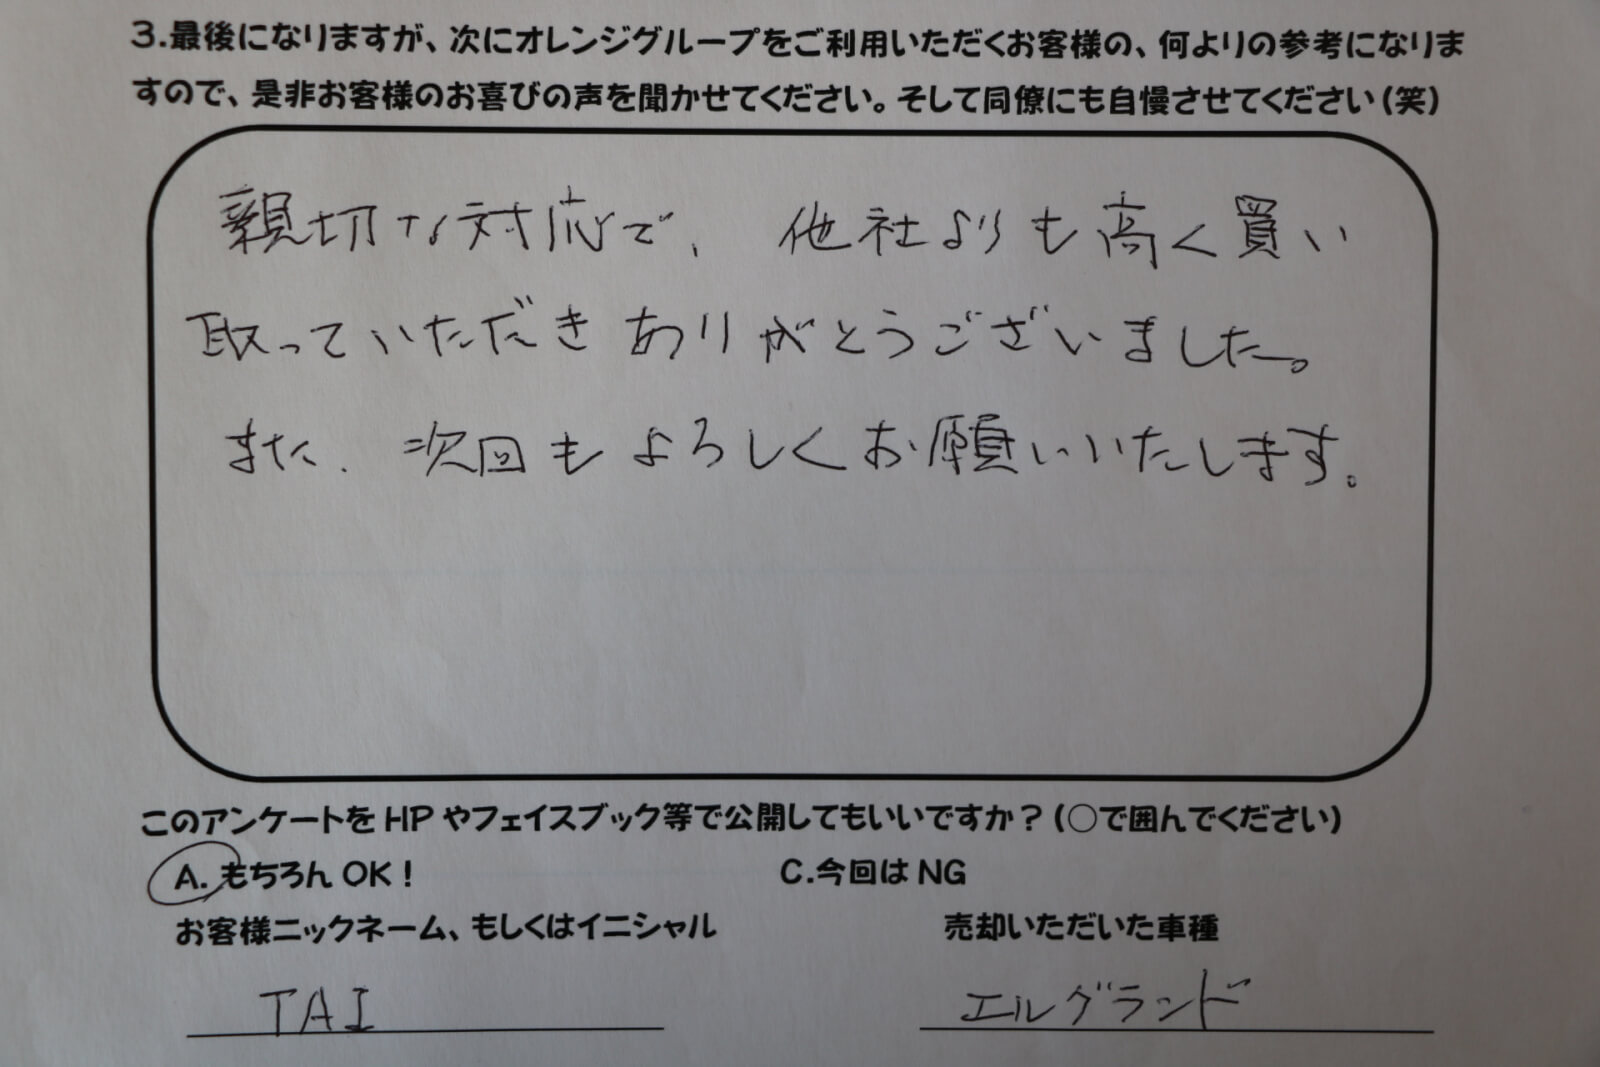 3.最後になりますが、次にオレンジグループをご利用いただくお客様の、何よりの参考になりま
すので、是非お客様のお喜びの声を聞かせてください。そして同僚にも自慢させてください(笑)
親切な対応で、他社よりも高く買い
取っていただきありがとうございました。
また、次回もよろしくお願いいたします。
このアンケートをHPやフェイスブック等で公開してもいいですか?(○で囲んでください)
A.もちろんOK! C.今回はNG
お客様ニックネーム、もしくはイニシャル 売却いただいた車種
TAI エルグランド